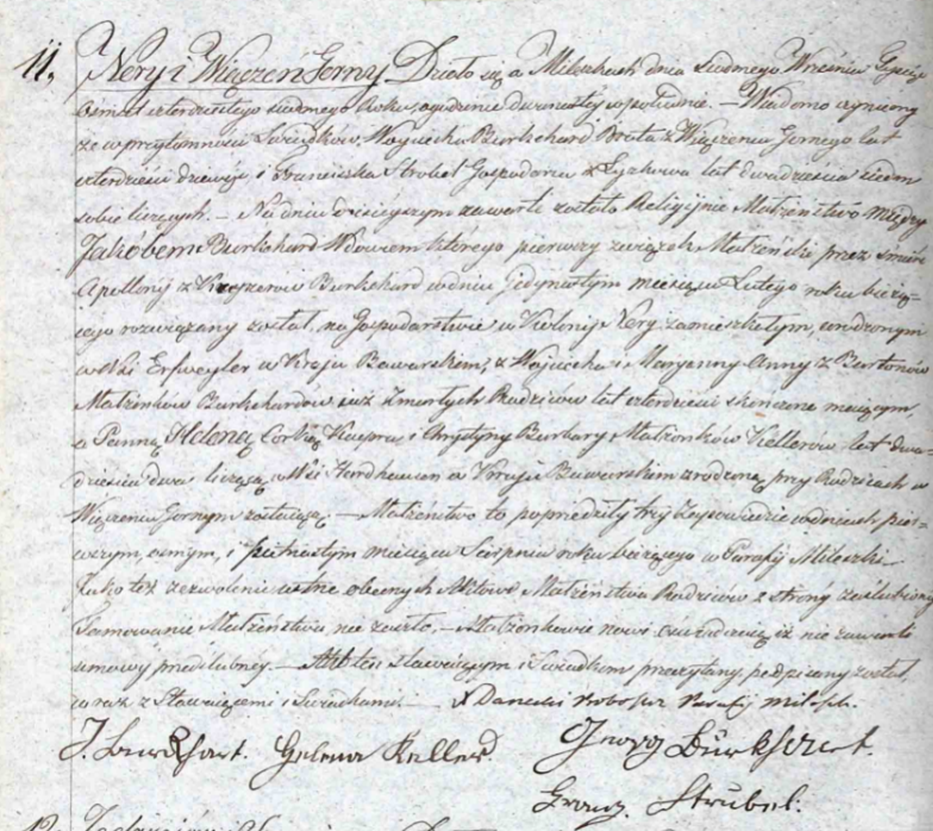 11. Nery i Wiączeń Gorny Działo się w Mileszkach dnia siódmego Września Tysiąc
ośmset czterdziestego siódmego Roku, o godzinie dwunastej w południe. — Wiadomo czyniemy
że w przytomności Świadków, Woyciecha Burkchard Brata z Wiączenia Gornego lat
czterdzieści dziewięć, i Franciszka Strobel Gospodarza z Łyzkowa lat dwadzieścia siedm
sobie liczących. — Na dniu dzisieyszym zawarte zostało Religijnie Małżeństwo między
Jakóbem Burkchard Wdowcem którego pierwszy związek Małżeński przez śmierć
Apollonij z Burkchard w dniu jedynastym miesiąca Lutego roku bieżą=
cego rozwiązany został, na Gospodarstwie w Kolonij Nery zamieszkałym, urodzonym
w Wsi Erfweyler w Kraju Bawarskiem, z Woyciecha i Maryanny Anny z Bartonów
Małżonków Burkchardow już Zmarłych Rodziców lat czterdzieści skończone mającym,
a Panną Heleną Córką Kacpra i Krystyny Barbary Małżonków Kellerow, lat dwa=
dzieścia dwa liczącą w Wsi w Kraju Bawarskiem zrodzoną przy Rodzicach w
Wiączeniu Gornym zostaiącą. — Małżeństwo to poprzedziły trzy Zapowiedzie w dniach pier=
wszym, osmym, i piętnastym miesiąca Sierpnia roku bieżącego w Parafij Mileszki
Jako też zezwolenie ustne obecnych Aktowi Małżeństwa Rodziców z strony zaślubioney
Tamowanie Małżeństwa nie zaszło, — Małżonkowie nowi oświadczaią iż nie zawarli
umowy przedślubney. — Akt ten stawaiącym i Świadkom przeczytany, podpisany został,
wraz z Stawaiącemi i Świadkami. — X Danecki Proboszcz Parafij Milesk.
J. Burkhart. Helena Keller. Georg Burkhart.
Franz Strubel.